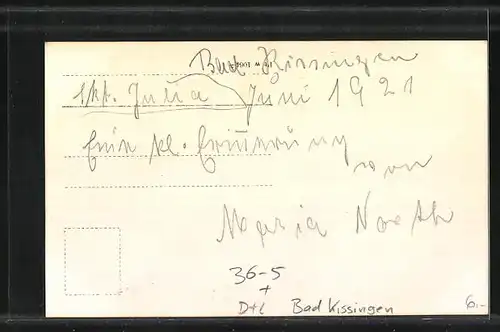 Bad Kissingen
Juni 1921
Eine kl. Erinnerung
von
Maria
36-5
+
D+L Bad Kissingen
6.-